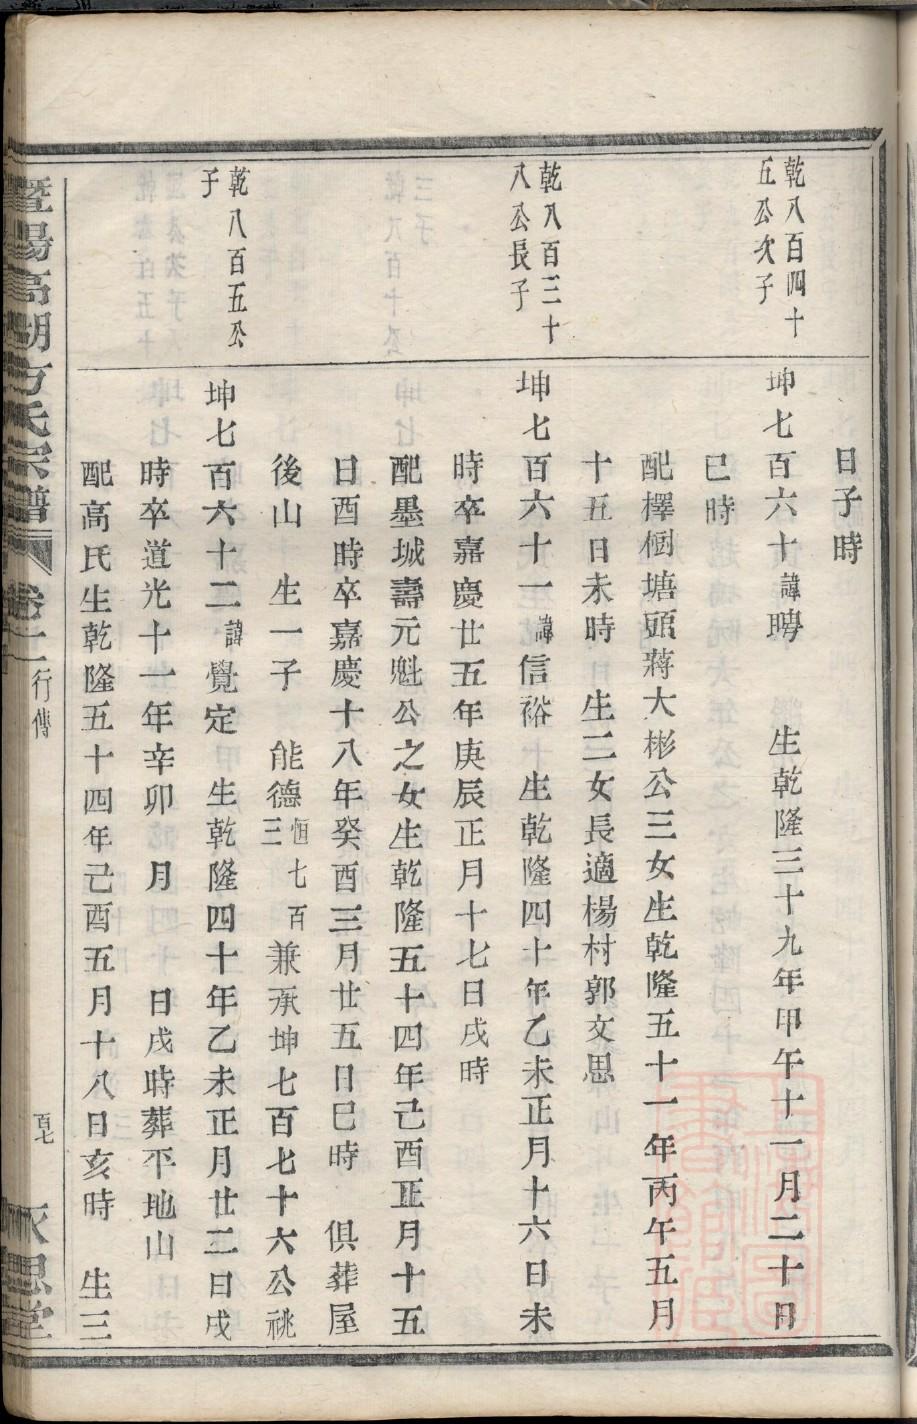 日子時
乾八百四十
五公次子
坤七百六十諱聘 生乾隆三十九年甲午十一月二十日
巳時
配檡樹塘頭蔣大彬公三女生乾隆五十一年丙午五月
十五日未時 生二女長適楊村郭文思
乾八百三十
八公長子
坤七百六十一諱信裕 生乾隆四十年乙未正月十六日未
時卒嘉慶廿五年庚辰正月十七日戌時
配墨城壽元魁公之女生乾隆五十四年己酉正月十五
日酉時卒嘉慶十八年癸酉三月廿五日巳時 俱葬屋
後山 生一子 能德恒七百三兼承坤七百七十六公祧
乾八百五公
子
坤七百六十二諱覺定 生乾隆四十年乙未正月廿二日戌
時卒道光十一年辛卯 月 日戌時葬平地山
配高氏生乾隆五十四年己酉五月十八日亥時 生三
暨陽高湖方氏宗譜 卷十 行傳 百七 思堂